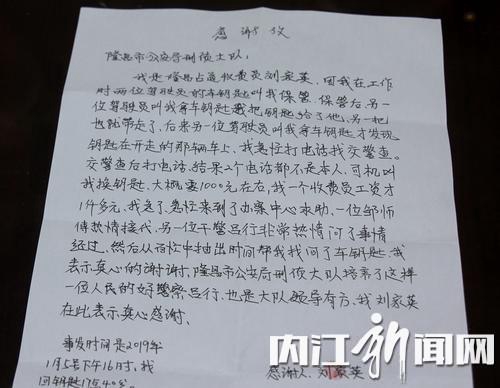 感谢信
隆昌市公安局刑侦大队:
我是隆昌占道收费员刘家英,因我在工作
时两位驾驶员的车钥匙叫我保管、保管后,另一
位驾驶员叫我拿车钥匙我把钥匙给了他,另一把
也就带走了,后来另一位驾驶员叫我拿车钥匙才发现
钥匙在开走的那辆车上、我急忙打电话找交警查。
交警查后打电话、结果2个电话都不是本人、司机叫
我换钥匙、大概要1000元左右,我一个收费员工资才
1千多元,我急了、急忙来到了办案中心求助、一位邹师
傅热情接代、另一位干警吕行非常热情问了事情
经过、然后从百忙中抽出时间帮我找问了车钥匙、我
表示真心的谢谢、隆昌市公安局刑侦大队培养了这样
一位人民的好警察吕行、也是大队领导有方、我刘家英
在此表示真心感谢、
事发时间是2019年
1月5号下午16时、我
回钥匙17点40分。
感谢人、刘家英
内江新闻网